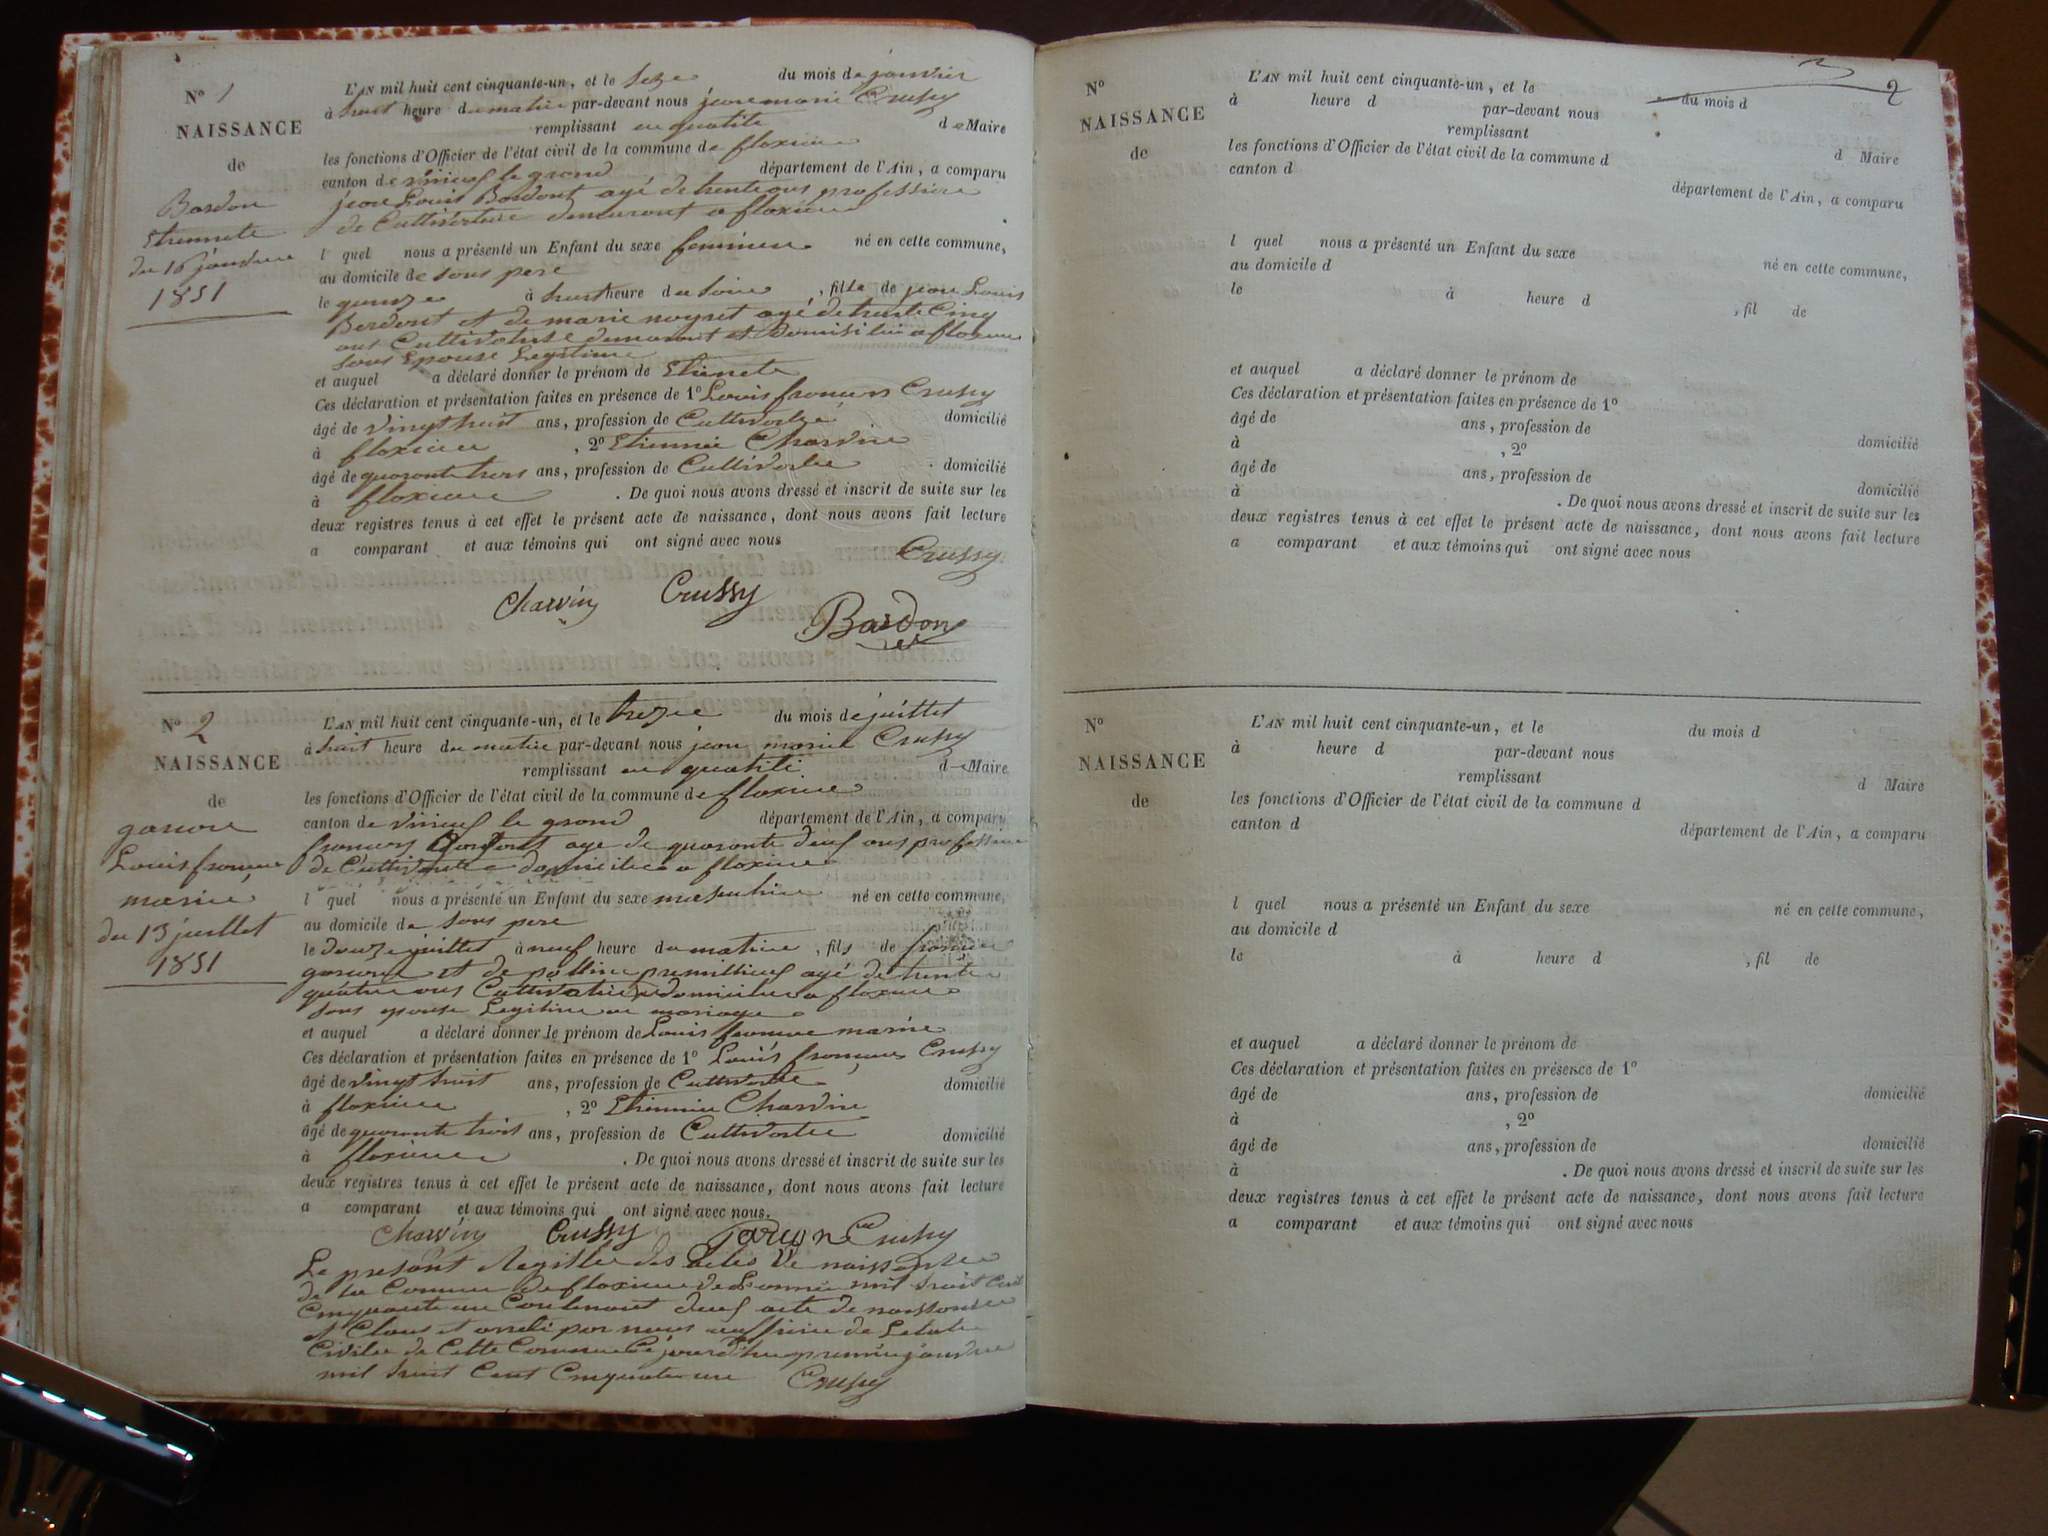 N° 1
NAISSANCE
de
Bardon
Etiennete
du 16 janvier
1851
L'AN mil huit cent cinquante-un, et le seze du mois de janvier
à huit heure du matin par-devant nous jean marie Crussy
remplissant en qualité de Maire
les fonctions d'Officier de l'état civil de la commune de floxieu
canton de virieu le grand département de l'Ain, a comparu
jean Louis Bardont agé de trente ans profession
de Cultivateur demeurant a floxieu
l quel nous a présenté un Enfant du sexe feminin né en cette commune,
au domicile de sons pere
le quinze à huit heure du soire, fille de jean Louis
Bardont et de marie noyret agé de trente Cinq
ans Cultivatrise demeurant et Domicilié a floxieu
sons Epouse Legitime
et auquel a déclaré donner le prénom de Etiennete
Ces déclaration et présentation faites en présence de 1° Louis francois Crussy
âgé de vingt huit ans, profession de Cultivateur domicilié
à floxieu, 2° Etienne Charvin
âgé de quarante trois ans, profession de Cultivateur domicilié
à floxieu. De quoi nous avons dressé et inscrit de suite sur les
deux registres tenus à cet effet le présent acte de naissance, dont nous avons fait lecture
a comparant et aux témoins qui ont signé avec nous
Crussy
Charvin Crussy
Bardon
N° 2
NAISSANCE
de
Louis
marie
du 13 juillet
1851
L'AN mil huit cent cinquante-un, et le treze du mois de juillet
à huit heure du matin par-devant nous jean marie Crussy
remplissant en qualité de Maire
les fonctions d'Officier de l'état civil de la commune de floxieu
canton de virieu le grand département de l'Ain, a comparu
francois age de quarante deuf ans profession
de Cultivateur domicilié a floxieu
l quel nous a présenté un Enfant du sexe masculin né en cette commune,
au domicile de sons pere
le douze juillet à neuf heure du matin, fils de francois
et de agé de trente
quatre ans Cultivatrice domicilié a floxieu
sons epouse Legitime en mariage
et auquel a déclaré donner le prénom de Louis marie
Ces déclaration et présentation faites en présence de 1° Louis francois Crussy
âgé de vingt huit ans, profession de Cultivateur domicilié
à floxieu, 2° Etienne Charvin
âgé de quarante trois ans, profession de Cultivateur domicilié
à floxieu. De quoi nous avons dressé et inscrit de suite sur les
deux registres tenus à cet effet le présent acte de naissance, dont nous avons fait lecture
a comparant et aux témoins qui ont signé avec nous.
Charvin Crussy Crussy
Le present Registre des actes de naissance
de la Comune de floxieu de Lannée mil huit Cent
Cinquante un Contenant deuf acte de naissance
et Clous et par nous officier de Letat
Civile de Cette Commune premier janvier
mil huit Cent Cinquante un Crussy
2
N°
NAISSANCE
de
L'AN mil huit cent cinquante-un, et le du mois d
à heure d par-devant nous
remplissant d Maire
les fonctions d'Officier de l'état civil de la commune d
canton d département de l'Ain, a comparu
l quel nous a présenté un Enfant du sexe né en cette commune,
au domicile d
le à heure d, fil de
et auquel a déclaré donner le prénom de
Ces déclaration et présentation faites en présence de 1°
âgé de ans, profession de domicilié
à, 2°
âgé de ans, profession de domicilié
à. De quoi nous avons dressé et inscrit de suite sur les
deux registres tenus à cet effet le présent acte de naissance, dont nous avons fait lecture
a comparant et aux témoins qui ont signé avec nous
N°
NAISSANCE
de
L'AN mil huit cent cinquante-un, et le du mois d
à heure d par-devant nous
remplissant d Maire
les fonctions d'Officier de l'état civil de la commune d
canton d département de l'Ain, a comparu
l quel nous a présenté un Enfant du sexe né en cette commune,
au domicile d
le à heure d, fil de
et auquel a déclaré donner le prénom de
Ces déclaration et présentation faites en présence de 1°
âgé de ans, profession de domicilié
à, 2°
âgé de ans, profession de domicilié
à. De quoi nous avons dressé et inscrit de suite sur les
deux registres tenus à cet effet le présent acte de naissance, dont nous avons fait lecture
a comparant et aux témoins qui ont signé avec nous